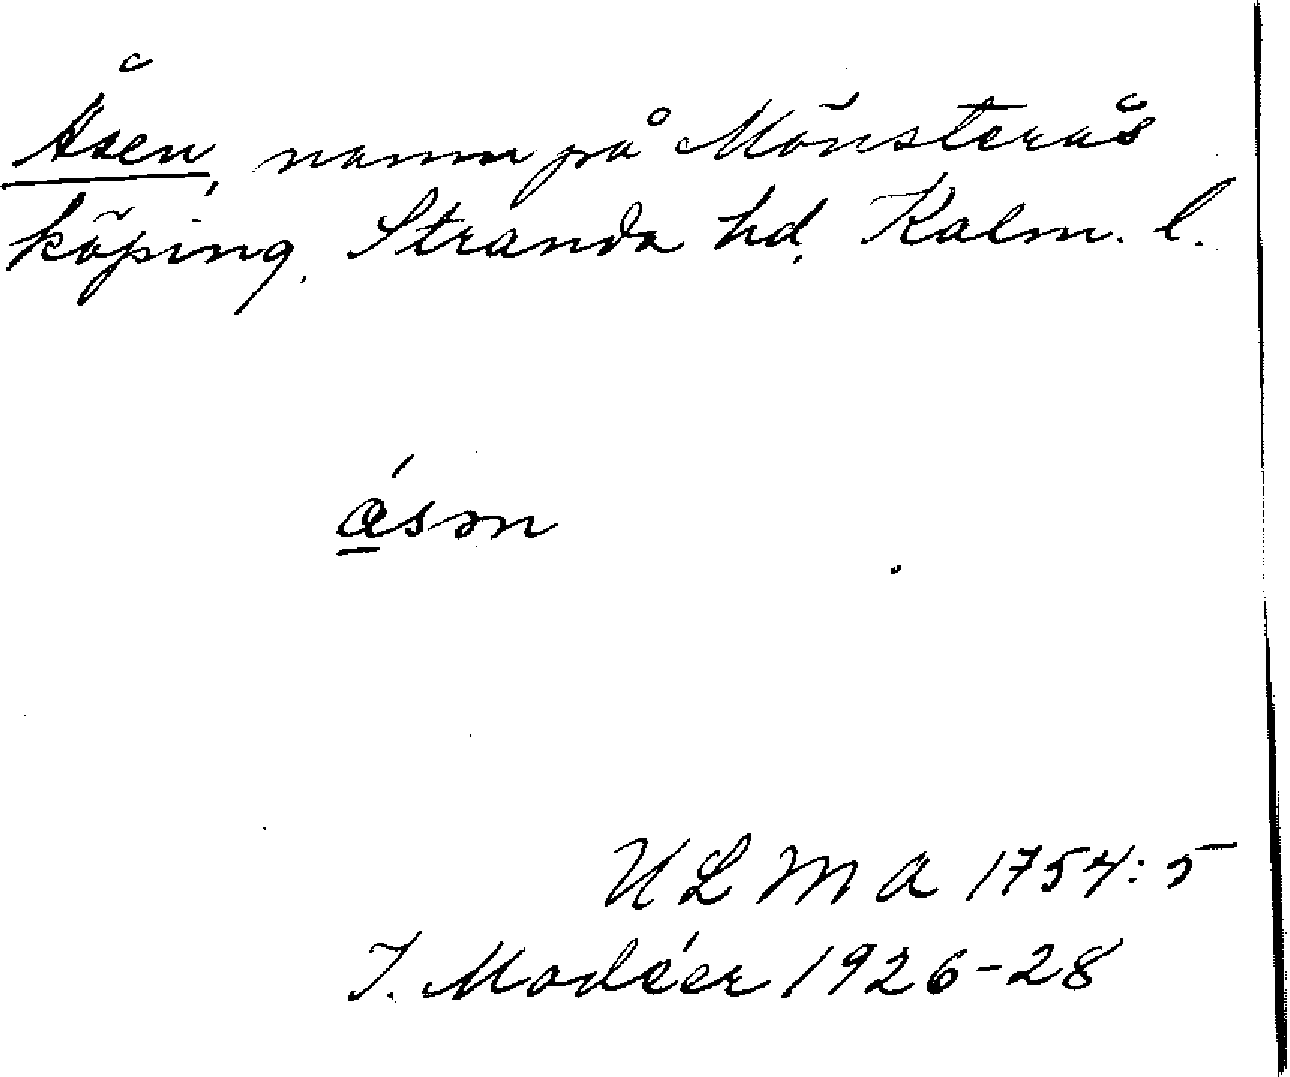 Åsen, namn på Mönsterås
köping, Stranda hd, Kalm. l.
ǻsən
ULMA 1754:5
I. Modéer 1926-28